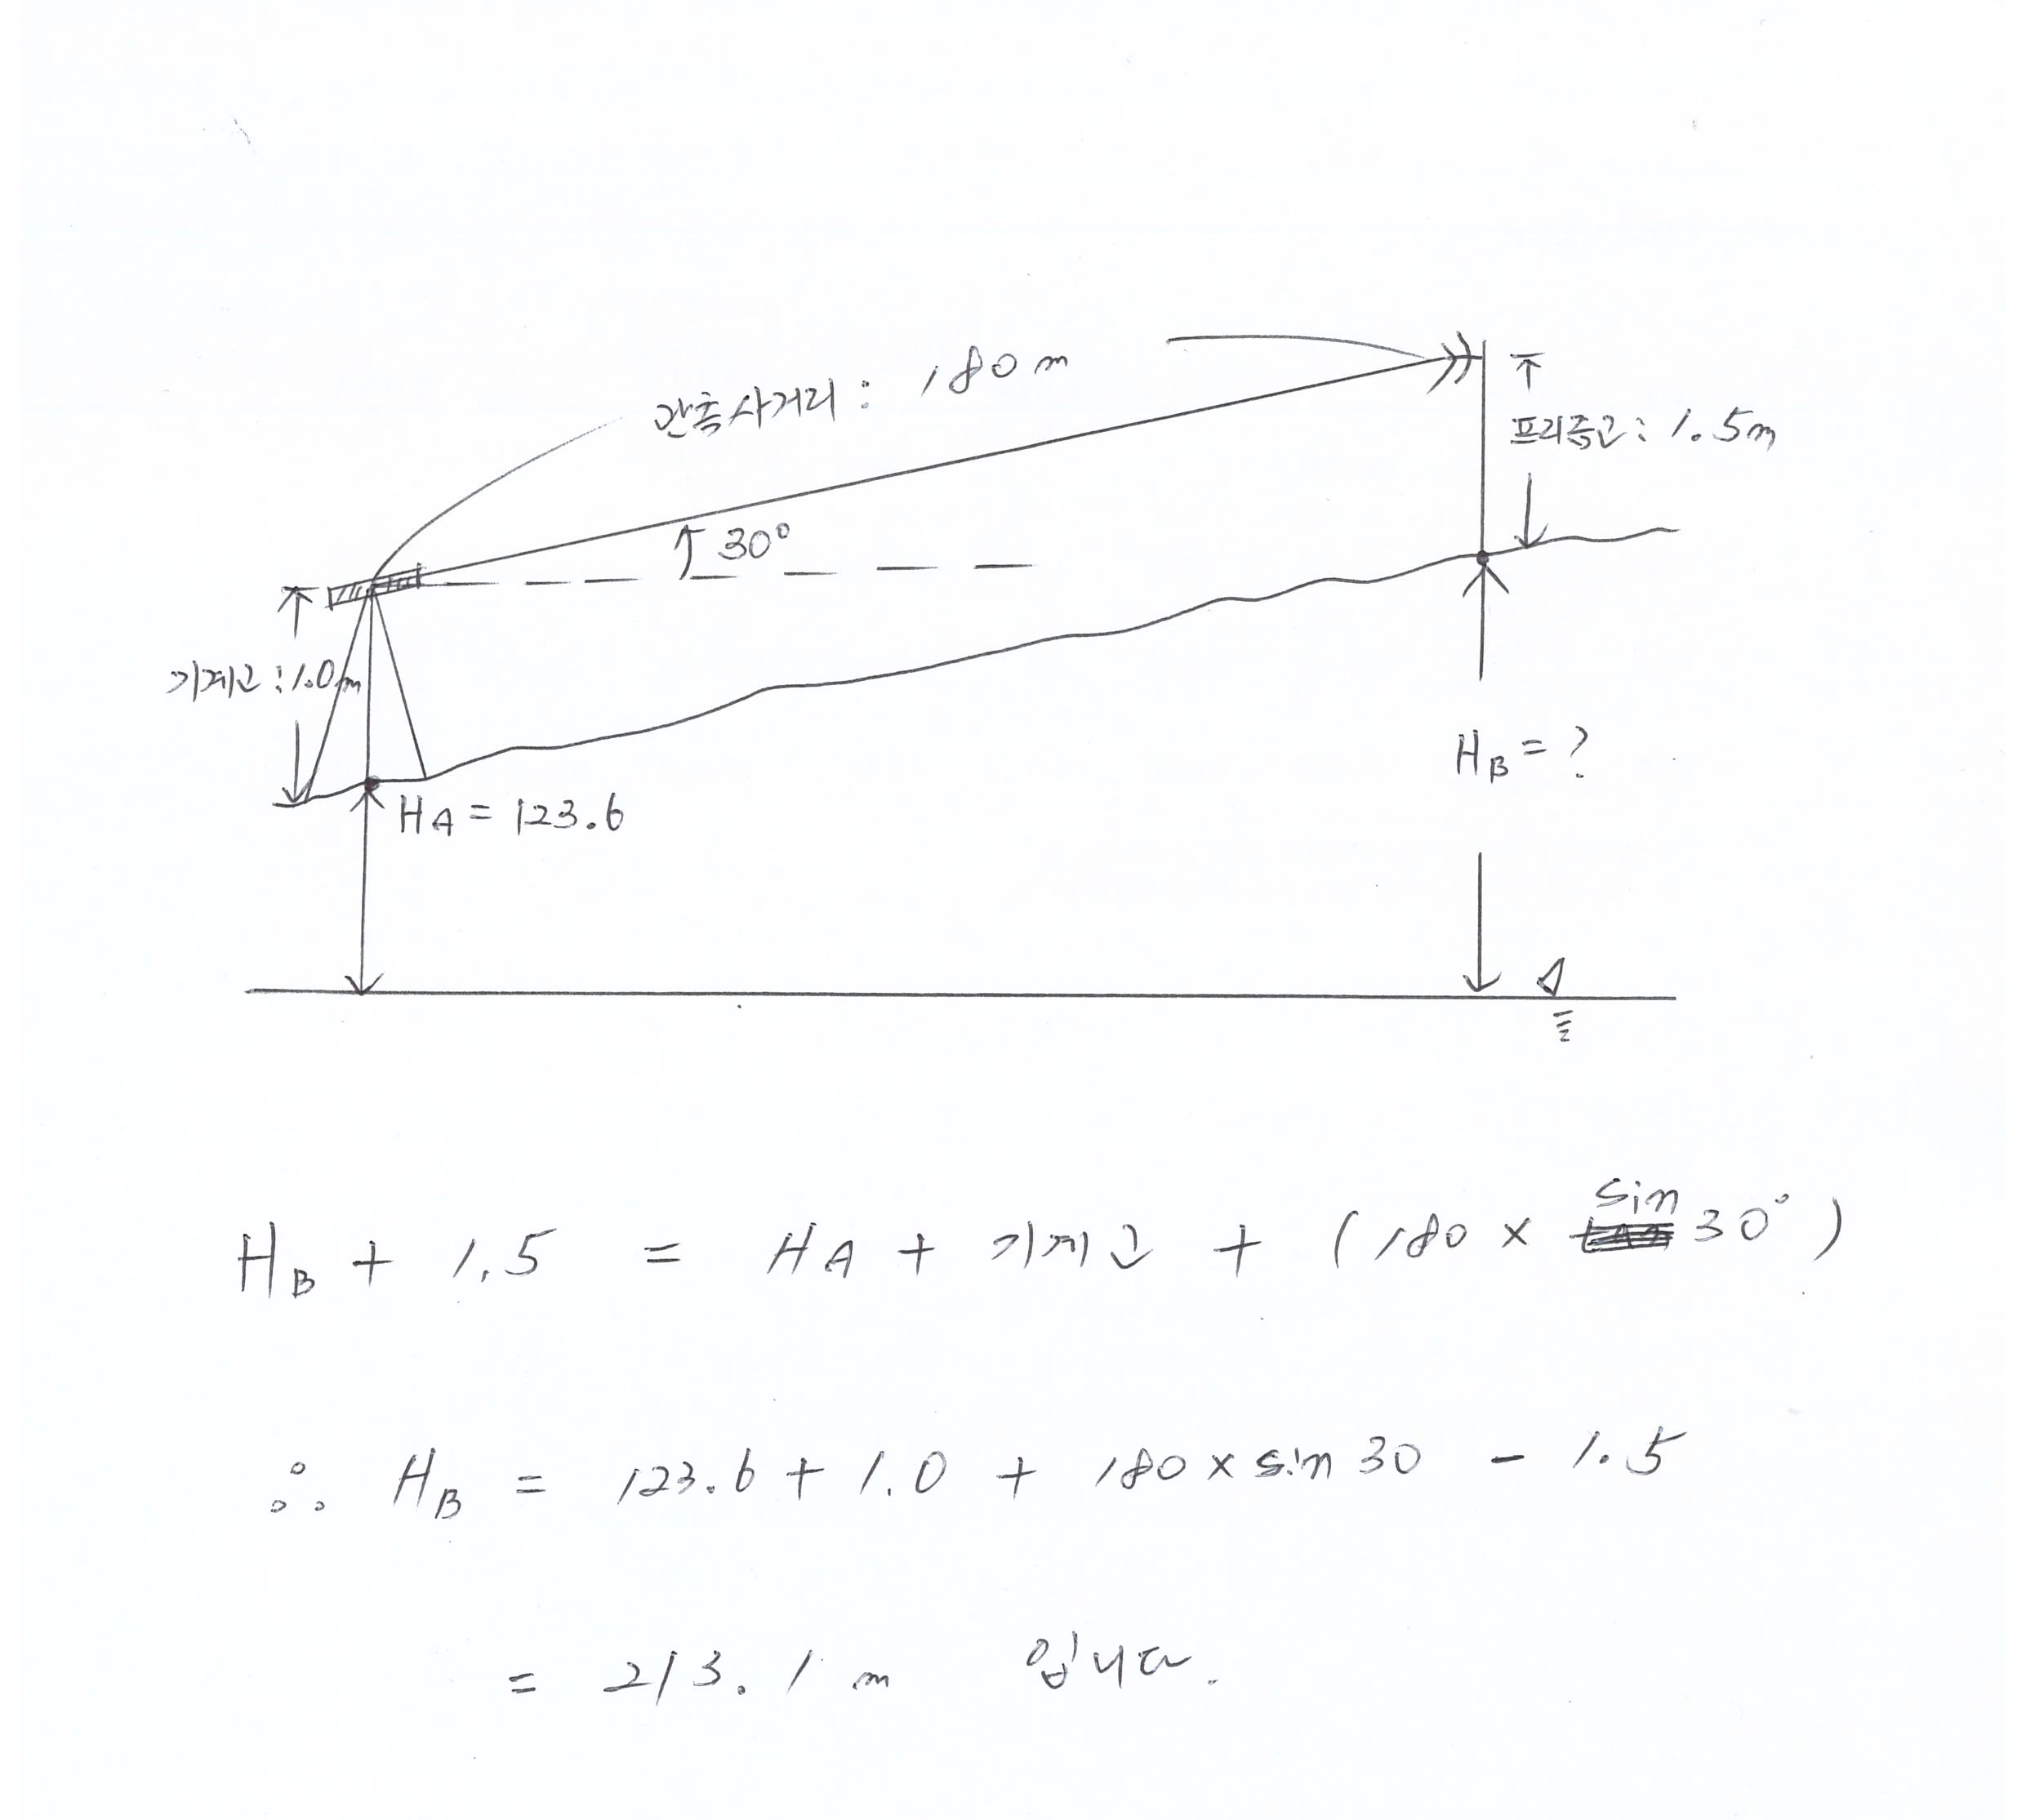 관측사거리: 180m
프리즘고: 1.5m
30°
기계고: 1.0m
HA = 123.6
HB = ?
HB + 1.5 = HA + 기계고 + (180 × sin 30°)
∴ HB = 123.6 + 1.0 + 180 × sin 30 - 1.5
= 213.1 m 입니다.